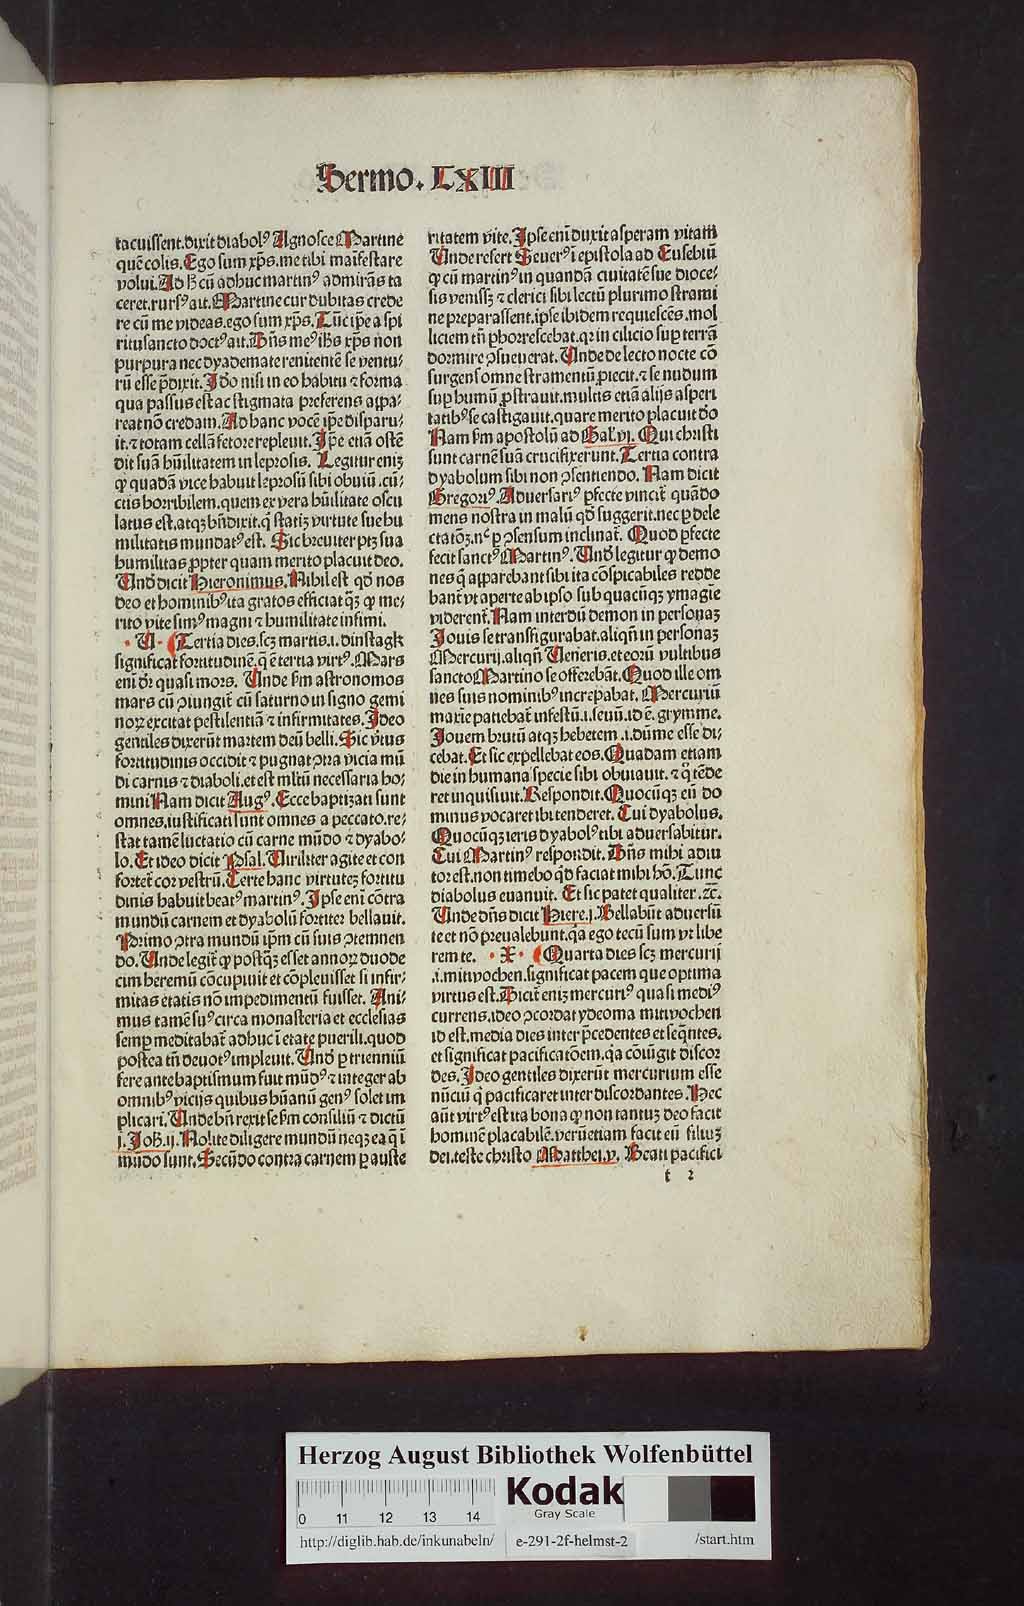 Sermo. LXIII
tacuissent. dixit diabolꝰ Agnosce Martine
quē colis. Ego sum xp̄s. me tibi maīfestare
volui. Ad h̄ cū adhuc martinꝰ admirās ta
ceret. rursꝰ ait. Martine cur dubitas crede
re cū me videas. ego sum xp̄s. Tūc ip̄e a spi
ritusancto doctꝰ ait. Dn̄s meꝰ ih̄s xp̄s non
purpura nec dyademate renitentē se ventu⸗
rū esse p̄dixit. Id̄o nisi in eo habitu ⁊ forma
qua passus est ac stigmata preferens appa⸗
reat nō credam. Ad hanc vocē ip̄e disparu⸗
it. ⁊ totam cellā fetore repleuit. Ip̄e etiā ostē
dit suā hūilitatem in leprosis. Legitur eniꝫ
ꝙ quadā vice habuit leprosū sibi obuiū. cū⸗
ctis horribilem. quem ex vera hūilitate oscu
latus est. atqꝫ bn̄dixit. q̄ statiꝫ virtute sue hu
militatis mundatꝰ est. Sic breuiter ptꝫ sua
humilitas ꝓpter quam merito placuit deo.
Vnd̄ dicit Hieronimus. Nihil est qd̄ nos
deo et hominibꝰ ita gratos efficiat q̄ꝫ ꝙ me⸗
rito vite simꝰ magni ⁊ humilitate infimi.
· V · Tertia dies. scꝫ martis .i. dinstagk
significat fortitudinē. q̄ ē tertia virtꝰ. Mars
eni d̄r quasi mors. Vnde s̄m astronomos
mars cū ꝯiungit̄ cū saturno in signo gemi
noꝝ excitat pestilentiā ⁊ infirmitates. Ideo
gentiles dixerūt martem deū belli. Sic v̄tus
fortitudinis occidit ⁊ pugnat ꝯtra vicia mū
di carnis ⁊ diaboli. et est mltū necessaria ho⸗
mini Nam dicit Augꝰ. Ecce baptizati sunt
omnes. iustificati sunt omnes a peccato. re⸗
stat tamē luctatio cū carne mūdo ⁊ dyabo⸗
lo. Et ideo dicit Psal. Viriliter agite et con
fortet̄ cor vestrū. Certe hanc virtuteꝫ fortitu
dinis habuit beatꝰ martinꝰ. Ipse eni cōtra
mundū carnem et dyabolū fortiter bellauit.
Primo ꝯtra mundū ip̄m cū suis ꝯtemnen
do. Vnde legit̄ ꝙ postq̄ꝫ esset annoꝝ duode
cim heremū cōcupiuit et cōpleuisset si infir⸗
mitas etatis nō impedimentū fuisset. Ani⸗
mus tamē suꝰ circa monasteria et ecclesias
semꝑ meditabat̄ adhuc ī etate puerili. quod
postea tn̄ deuotꝰ impleuit. Vnd̄ ꝑ triennium
fere ante baptismum fuit mūdꝰ ⁊ integer ab
omnibꝰ vicijs quibus hūanū genꝰ solet im
plicari. Vnde bn̄ rexit se s̄m consiliū ⁊ dictū
j. Joh̄. ij. Nolite diligere mundū neqꝫ ea q̄ ī
mūdo sunt. Secūdo contra carnem ꝑ auste
ritatem vite. Ipse eni duxit asperam vitam
Vnde refert Seuerꝰ ī epistola ad Eusebiū
ꝙ cū martinꝰ in quandā ciuitatē sue dioce⸗
sis venissꝫ ⁊ clerici sibi lectū plurimo strami
ne preparassent. ipse ibidem requiescēs. mol
liciem tn̄ ꝑhorrescebat. qꝛ in cilicio suꝑ terrā
dormire ꝯsueuerat. Vnde de lecto nocte cō
surgens omne stramentū ꝓiecit. ⁊ se nudum
suꝑ humū ꝓstrauit. multis etiā alijs asperi
tatibꝰ se castigauit. quare merito placuit d̄o
Nam s̄m apostolū ad Gal. vi. Qui christi
sunt carnē suā crucifixerunt. Tertia contra
dyabolum sibi non ꝯsentiendo. Nam dicit
Gregoriꝰ. Aduersariꝰ ꝑfecte vincit̄ quādo
mens nostra in malū qd̄ suggerit. nec ꝑ dele
ctatōꝫ. nc̄ ꝑ ꝯsensum inclinat̄. Quod ꝑfecte
fecit sanctꝰ Martinꝰ. Vnd̄ legitur ꝙ demo
nes q̄ apparebant sibi ita cōspicabiles redde
bant̄ vt aperte ab ipso sub quacūqꝫ ymagīe
viderent̄. Nam interdū demon in personaꝫ
Jouis se transfigurabat. aliqn̄ in personaꝫ
Mercurij. aliqn̄ Veneris. et eorū vultibus
sancto Martino se offerebāt. Quod ille om
nes suis nominibꝰ increpabat. Mercuriū
maxīe patiebat̄ infestū .i. seuū. id ē. grymme.
Jouem brutū atqꝫ hebetem .i. dūme esse di⸗
cebat. Et sic expellebat eos. Quadam etiam
die in humana specie sibi obuiauit. ⁊ q̄ tēde
ret inquisiuit. Respondit. Quocūqꝫ eū do
minus vocaret ibi tenderet. Cui dyabolus.
Quocūqꝫ ieris dyabolꝰ tibi aduersabitur.
Cui Martinꝰ respondit. Dn̄s mihi adiu
tor est. non timebo q̄d faciat mihi hō. Tunc
diabolus euanuit. Et sic patet qualiter. ⁊c̄.
Vnde dn̄s dicit Hiere. j. Bellabūt aduersū
te et nō preualebunt. q̄a ego tecū sum vt libe
rem te. · X · Quarta dies scꝫ mercurij
.i. mitwochen. significat pacem que optima
virtus est. Dicit̄ eniꝫ mercuriꝰ quasi mediꝰ
currens. ideo ꝯcordat ydeoma mitwochen
id est. media dies inter p̄cedentes et seq̄ntes.
et significat pacificatōem. q̄a cōiūgit discor
des. Ideo gentiles dixerūt mercurium esse
nūciū q̄ pacificaret inter discordantes. Hec
aūt virtꝰ est ita bona ꝙ non tantuꝫ deo facit
hominē placabilē. verūetiam facit eū filiuꝫ
dei. teste christo Matthei. v. Beati pacifici
t 2
Herzog August Bibliothek Wolfenbüttel
0 11 12 13 14
Kodak
Gray Scale
http://diglib.hab.de/inkunabeln/ e-291-2f-helmst-2 /start.htm